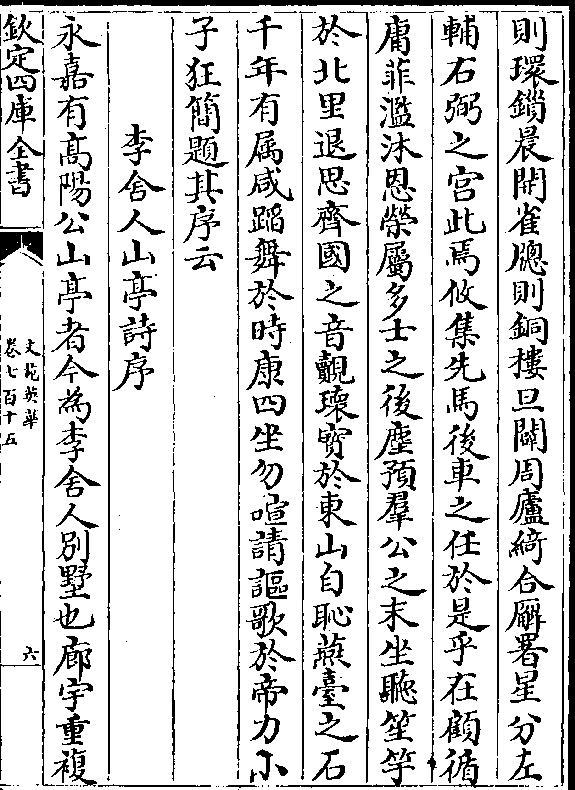 則環鎻晨開雀䆫則銅樓旦闢周廬綺合廨署星分左
輔右弼之宫此焉攸集先馬後車之任於是乎在顧循
庸菲濫沐恩榮屬多士之後塵預羣公之末坐聽笙竽
於北里退思齊國之音覿瓌寳於東山自恥燕臺之石
千年有屬咸蹈舞於時康四坐勿喧請謳歌於帝力小
子狂簡題其序云
李舍人山亭詩序
永嘉有髙陽公山亭者今為李舍人别墅也廊宇重複
欽定四庫全書
文苑英華
卷七百十五
六